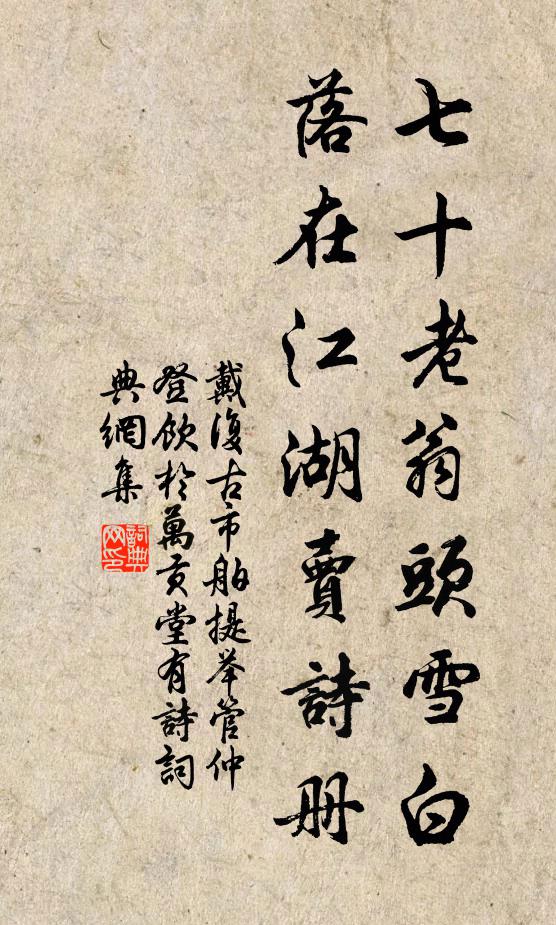 七十老翁頭雪白
落在江湖賣詩册
戴復古市舶提举管仲
登飲於萬貢堂有詩詞
典網集
詞典网印